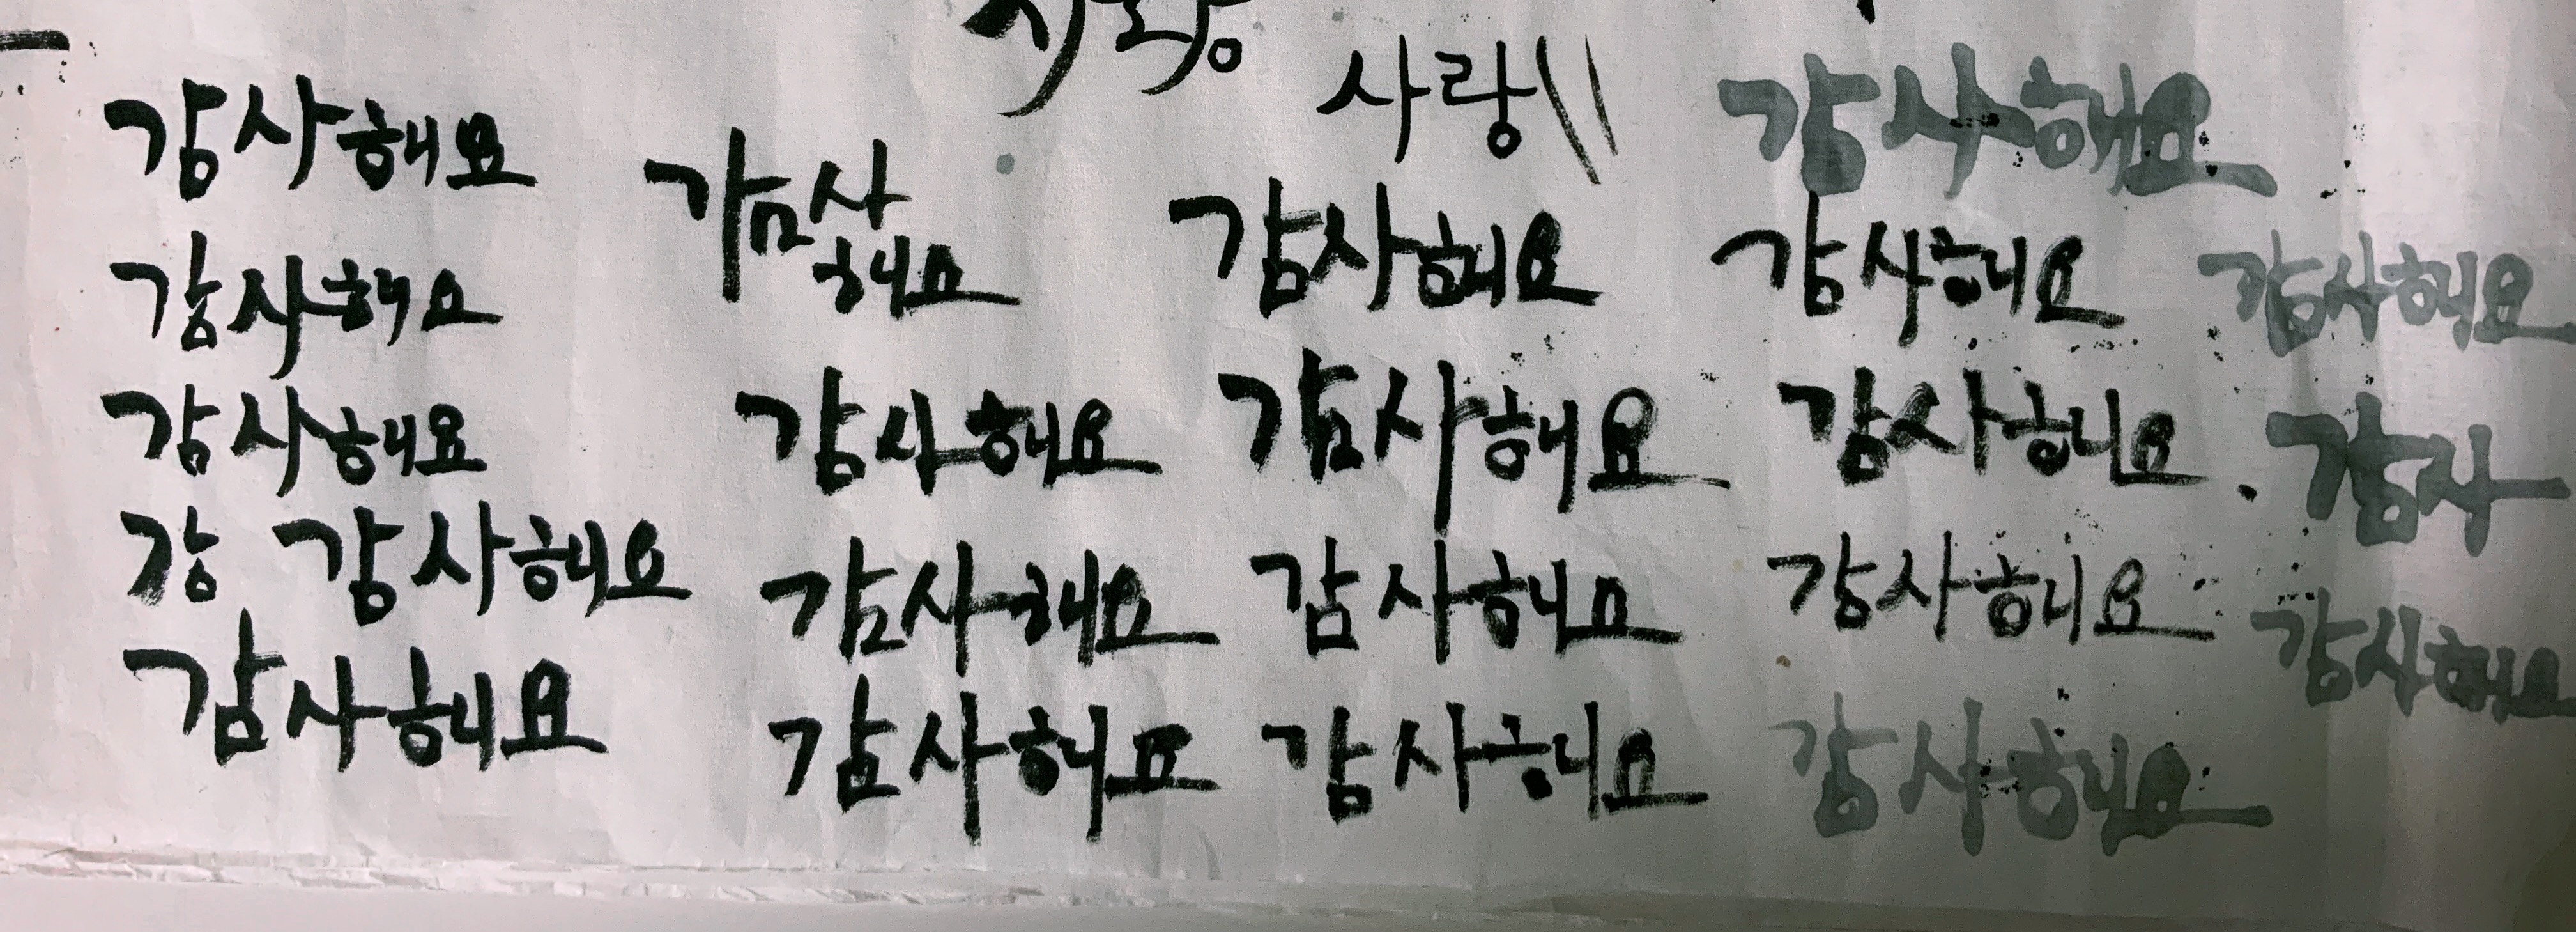 사랑
감사해요
감사해요
감사해요
감 감사해요
감사해요
감사
해요
감사해요
감사해요
감사해요
사랑
감사해요
감사해요
감사해요
감사해요
감사해요
감사해요
감사해요
감사해요
감사해요
감사해요
감사
감사해요